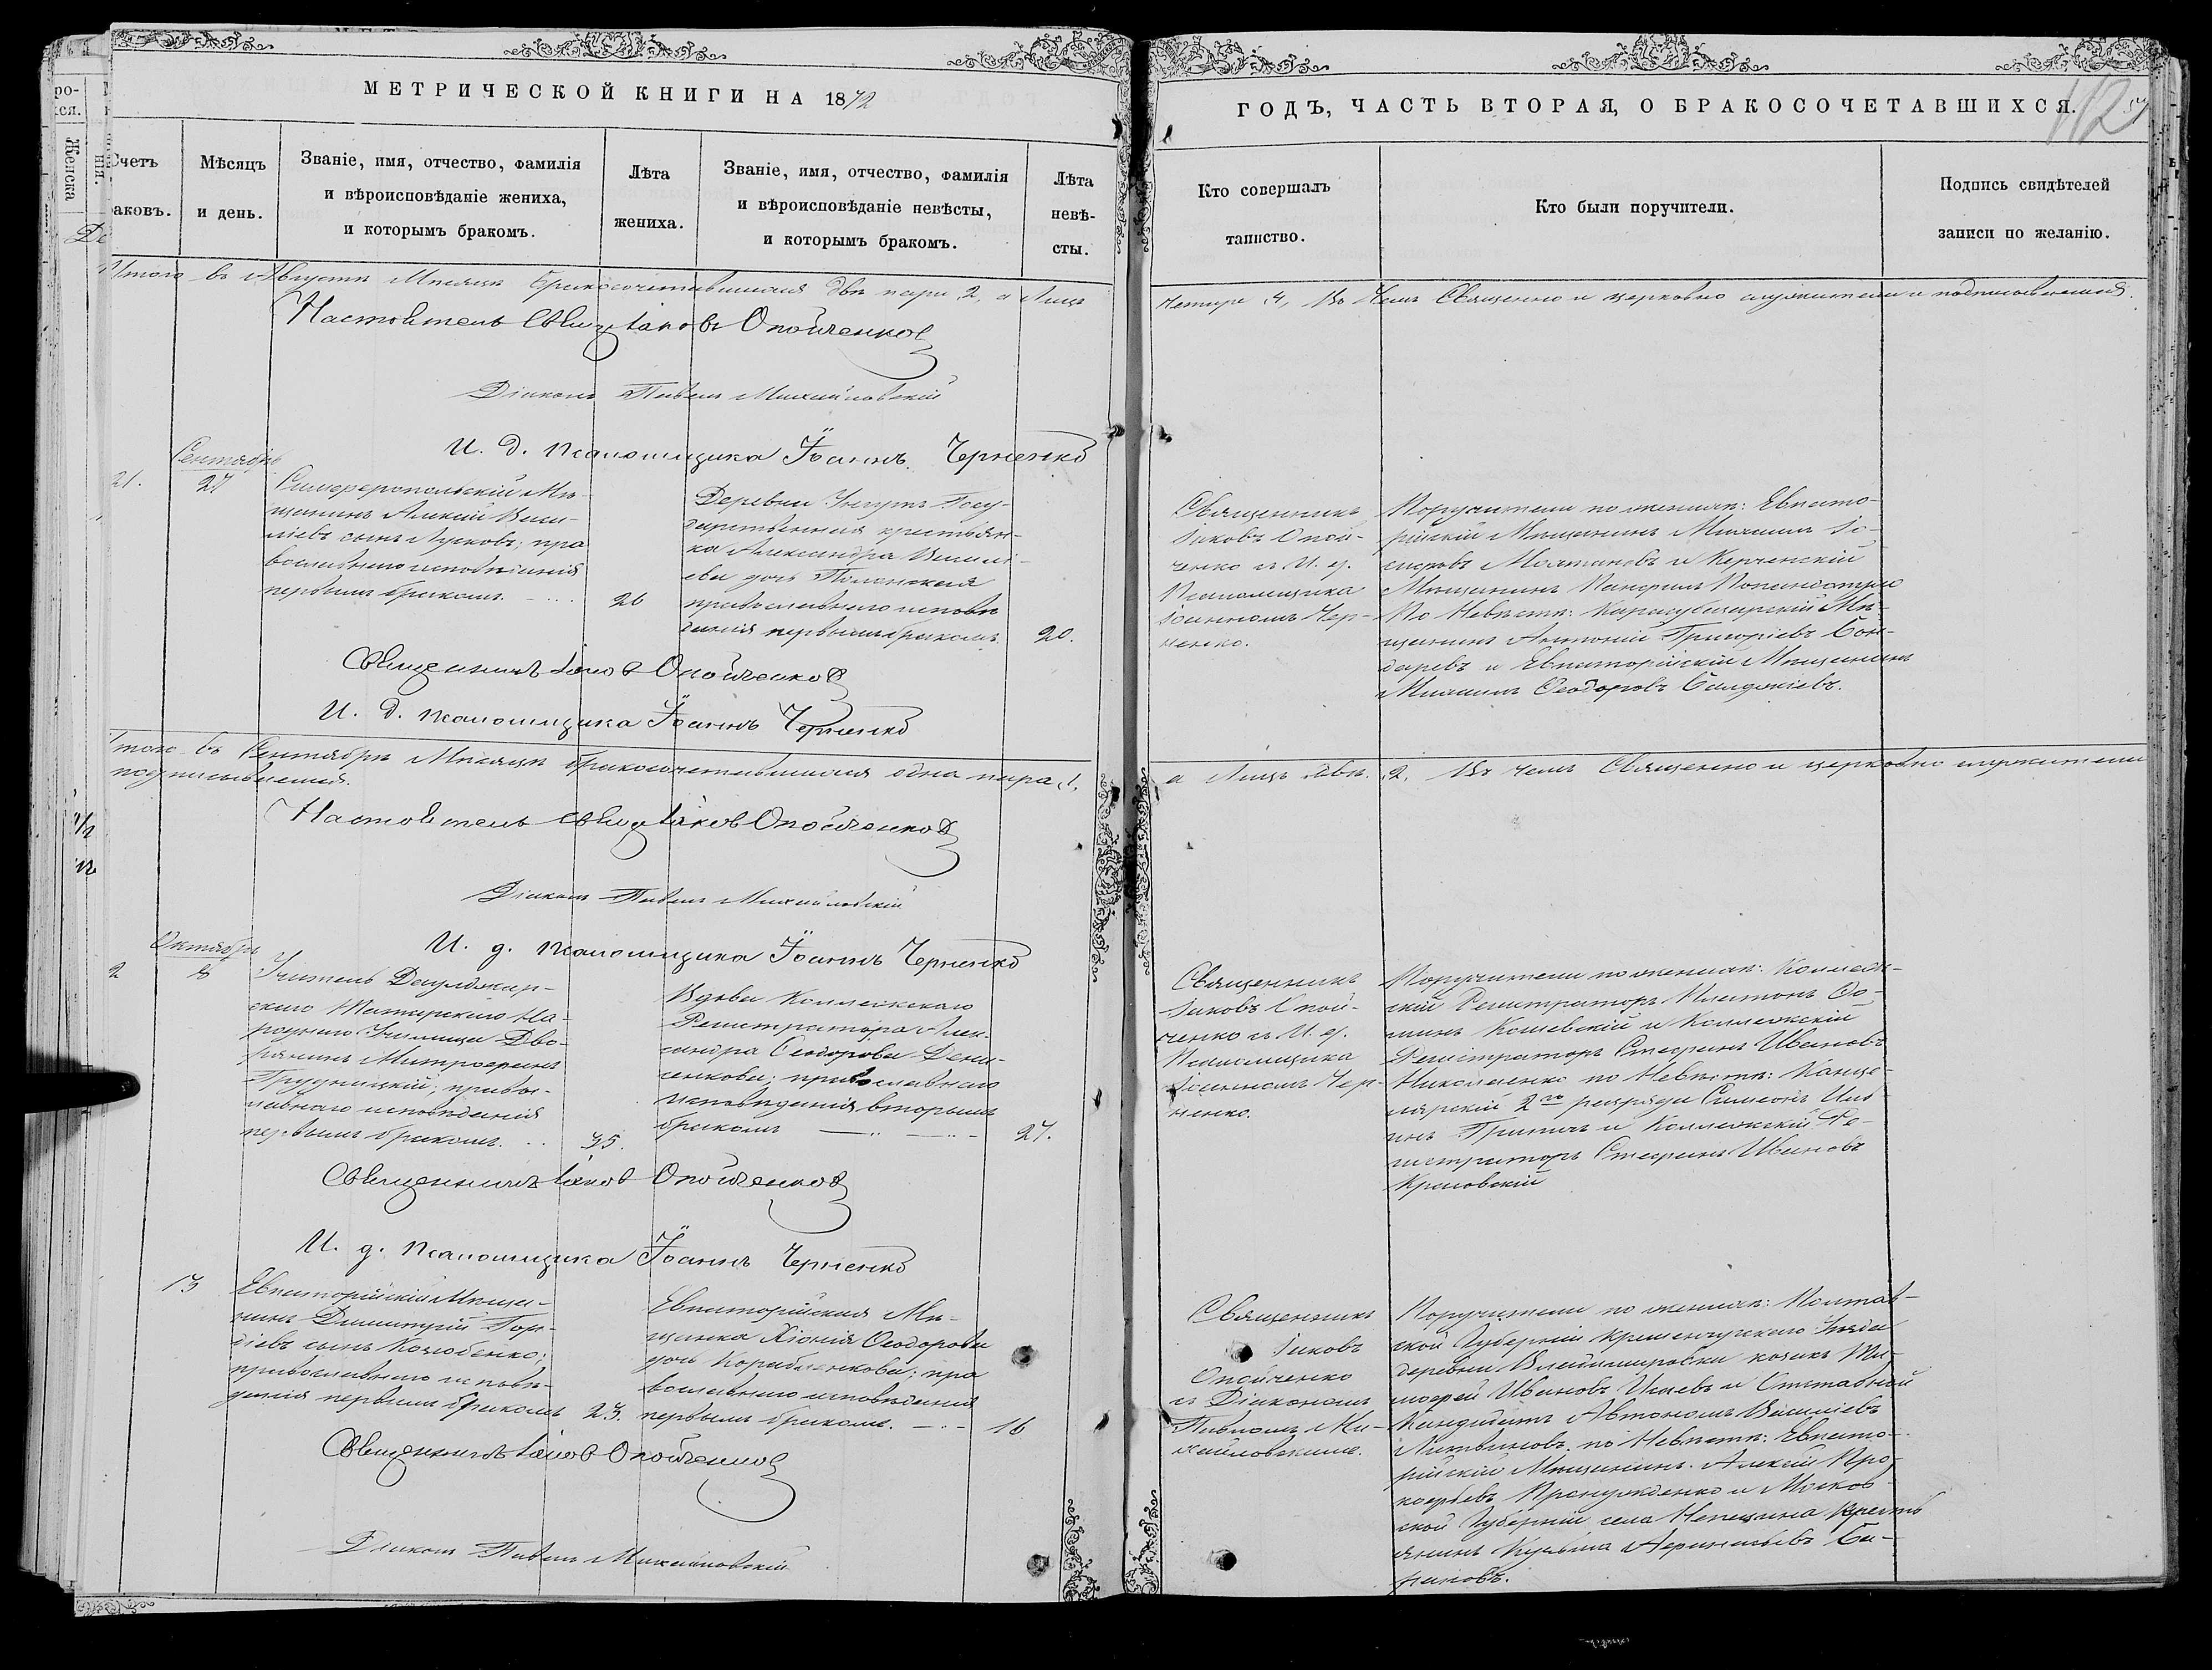 МЕТРИЧЕСКОЙ КНИГИ НА 1872
ГОДЪ, ЧАСТЬ ВТОРАЯ, О БРАКОСОЧЕТАВШИХСЯ.
112
Счетъ
браковъ.
Мѣсяцъ
и день.
Званіе, имя, отчество, фамилія
и вѣроисповѣданіе жениха,
и которымъ бракомъ.
Лѣта
жениха.
Званіе, имя, отчество, фамилія
и вѣроисповѣданіе невѣсты,
и которымъ бракомъ.
Лѣта
невѣ-
сты.
Кто совершалъ
таинство.
Кто были поручители.
Подпись свидѣтелей
записи по желанію.
Итого въ Августѣ Мѣсяцѣ бракосочетавшихся двѣ пары 2, а Лицъ
четыре 4, Въ чемъ Священно и церковно служители и подписываемся.
Настоятель Свящ Іаковъ Опойченковъ
Діаконъ Павелъ Михайловскій
И. д. псаломщика Іоаннъ Черненко
Сентябрь
21.
27
Симферопольскій Мѣ-
щанинъ Алексій Васи-
ліевъ сынъ Лусковъ; пра
вославнаго исповѣданія
первымъ бракомъ.
26
Деревни Унгутъ Госу-
дарственная крестьян-
ка Александра Василі-
ева дочь
православнаго исповѣ
данія первымъ бракомъ
20.
Священникъ
Іаковъ Опой-
ченко съ И. д.
Псаломщика
Іоанномъ Чер-
ненко.
Поручители по женихѣ: Евпато-
рійскій Мѣщанинъ Михаилъ
Молтановъ и Керченскій
Мѣщанинъ
По Невѣстѣ: Карасубазарскій Мѣ-
щанинъ Антоній Григоріевъ Бон-
даревъ и Евпаторійскій Мѣщанинъ
Михаилъ Ѳеодоровъ
Священникъ Іаковъ Опойченковъ
И. д. псаломщика Іоаннъ Черненко
Итого въ Сентябрѣ Мѣсяцѣ бракосочетавшихся одна пара 1,
а Лицъ двѣ. 2. Въ чемъ Священно и церковно служители
подписываемся.
Настоятель Свящ Іаковъ Опойченковъ
Діаконъ Павелъ Михайловскій
И. д. псаломщика Іоаннъ Черненко
Октябрь
2
8
Учитель Даулджар-
скаго Татарскаго На-
роднаго Училища Дво-
рянинъ Митрофанъ
Грудницкій; правос-
лавнаго исповѣданія
первымъ бракомъ.
35.
Вдова Коллежскаго
Регистратора Алек-
сандра Ѳеодорова Дени-
сенкова; православнаго
исповѣданія вторымъ
бракомъ
27.
Священникъ
Іаковъ Опой-
ченко съ И. д.
Псаломщика
Іоанномъ Чер-
ненко.
Поручители по женихѣ: Коллеж-
скій Регистраторъ Платонъ Ѳо-
минъ Кошевскій и Коллежскій
Регистраторъ Стефанъ Ивановъ
Николаенко по Невѣстѣ: Канце-
лярскій 2го разряда Симеонъ
и Коллежскій Ре-
гистраторъ Стефанъ Ивановъ
Священникъ Іаковъ Опойченковъ
И. д. псаломщика Іоаннъ Черненко
13
Евпаторійскій Мѣща-
нинъ Димитрій Гор-
діевъ сынъ Колюбенко;
православнаго исповѣ-
данія первымъ бракомъ
23.
Евпаторійская Мѣ-
щанка Хіонія Ѳеодорова
дочь Корабленкова; пра
вославнаго исповѣданія
первымъ бракомъ.
16
Священникъ
Іаковъ
Опойченко
съ Діакономъ
Павломъ Ми-
хайловскимъ.
Поручители по женихѣ: Полтав-
ской Губерніи Кременчугскаго Уѣзда
деревни Владимировки козакъ Ти-
мофей Ивановъ Исаевъ и Статскій
Кандидатъ Автономъ Василіевъ
Литвиновъ. по Невѣстѣ: Евпато-
рійскій Мѣщанинъ Алексій Про-
кофьевъ и Москов
ской Губерніи села Непецина кресть
янинъ Кузьма
Священникъ Іаковъ Опойченковъ
Діаконъ Павелъ Михайловскій